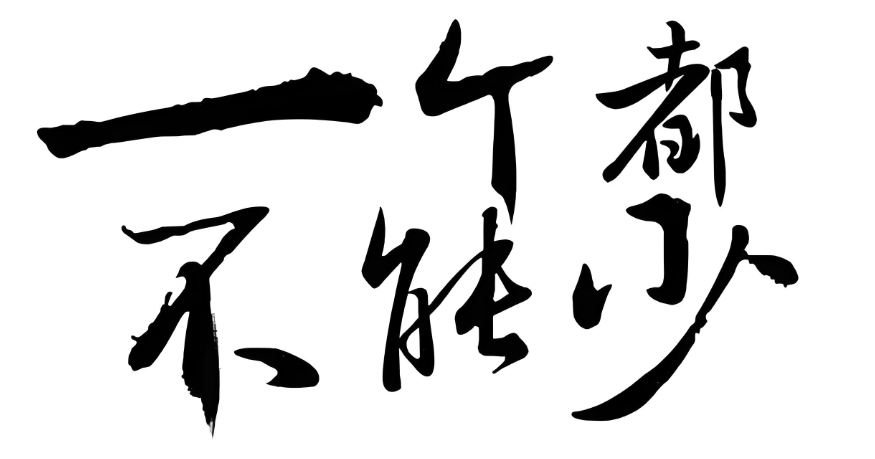 一个都
不能少